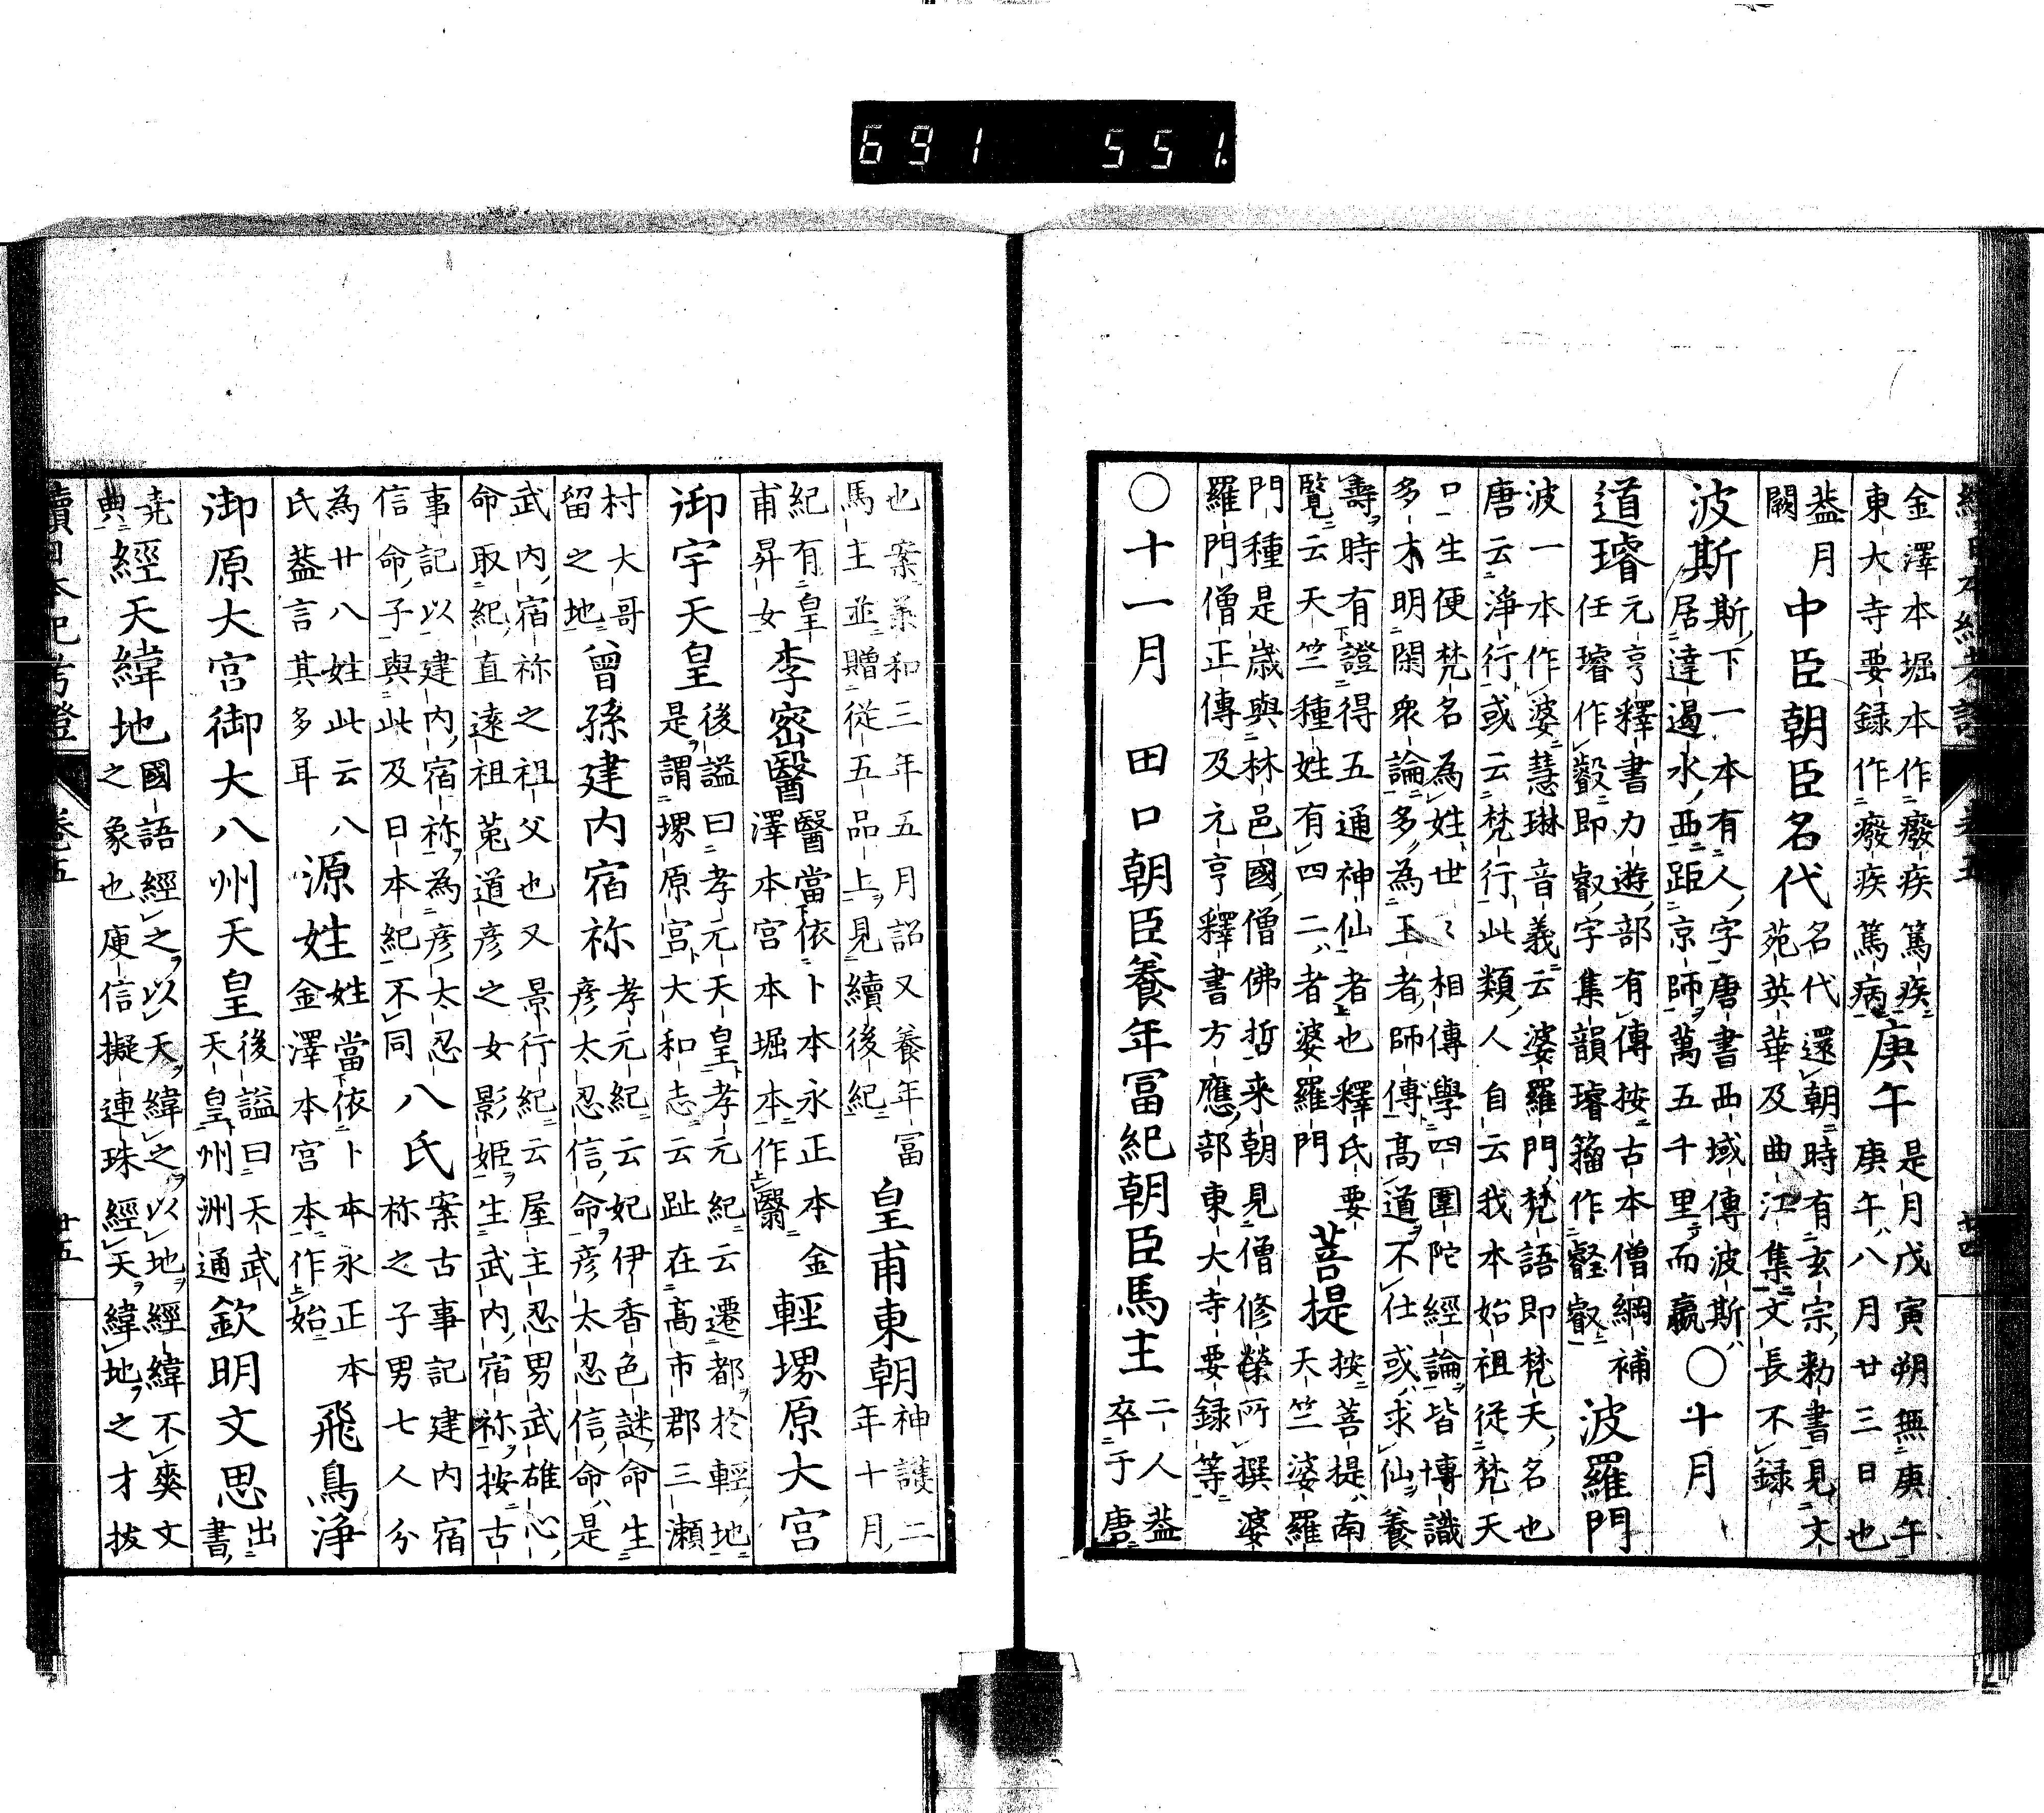 691 551.
續日本紀考證 卷五 廿四
金澤本堀本作癈疾篤疾
東大寺要録作癈疾篤病
庚午
是月戊寅朔無庚午
庚午八月廿三日也
蓋月
闕
中臣朝臣名代
名代還朝時有玄宗勅書見文
苑英華及曲江集文長不録
波斯
斯下一本有人字唐書西域傳波斯
居達遏水西距京師萬五千里而贏
○十月
道璿
元亨釋書力遊部有傳按古本僧綱補
任璿作叡即叡字集韻璿籀作壡叡
波羅門
波一本作婆慧琳音義云婆羅門梵語即梵天名也
唐云淨行或云梵行此類人自云我本始祖從梵天
口生便梵名為姓世〻相傳學四圍陀經論皆博識
多才明閑衆論多為王者師傅高道不仕或求仙養
壽時有證得五通神仙者也釋氏要
覽云天竺種姓有四二者婆羅門
菩提
按菩提南
天竺婆羅
門種是歳與林邑國僧佛哲来朝見僧修榮所撰婆
羅門僧正傳及元亨釋書方應部東大寺要録等
○十一月 田口朝臣養年冨紀朝臣馬主
二人蓋
卒于唐
也案承和三年五月詔又養年冨
馬主並贈從五品上見續後紀
皇甫東朝
神護二
年十月
紀有皇
甫昇女
李密醫
醫當依卜本永正本金
澤本宮本堀本作翳
輕堺原大宮
御宇天皇
後謚曰孝元天皇孝元紀云遷都於輕地
是謂堺原宮大和志云趾在高市郡三瀬
村大哥
留之地
曾孫建内宿祢
孝元紀云妃伊香色謎命生
彦太忍信命彦太忍信命是
武内宿祢之祖父也又景行紀云屋主忍男武雄心
命取紀直遠祖菟道彦之女影姫生武内宿祢按古
事記以建内宿祢為彦太忍
信命子與此及日本紀不同
八氏
案古事記建内宿
祢之子男七人分
為廿八姓此云八
氏蓋言其多耳
源姓
姓當依卜本永正本
金澤本宮本作始
飛鳥淨
御原大宮御大八州天皇
後謚曰天武
天皇州洲通
欽明文思
出
書
堯
典
經天緯地
國語經之以天緯之以地經緯不爽文
之象也庾信擬連珠經天緯地之才拔
續日本紀考證 卷五 廿五